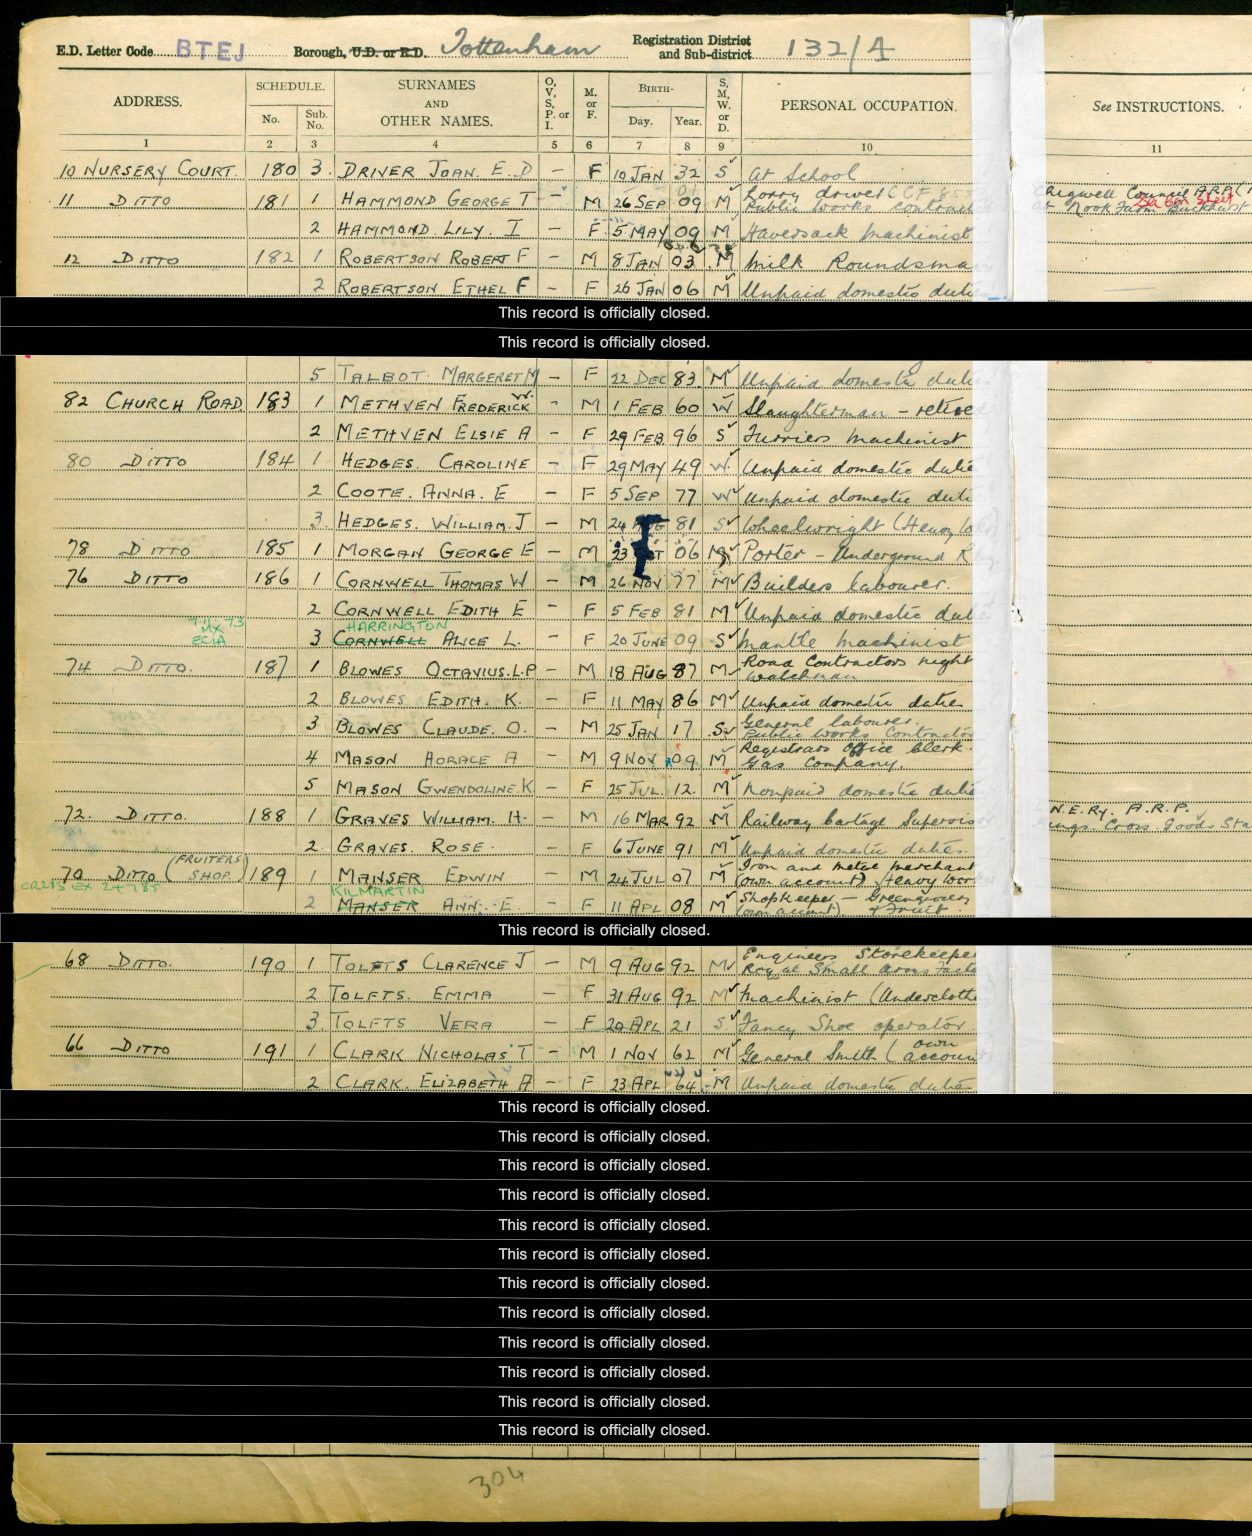 E.D. Letter Code BTEJ Borough, U.D. or R.D. Tottenham Registration District and Sub-district 132/4
ADDRESS. SCHEDULE. No. Sub. No. SURNAMES AND OTHER NAMES. O, V, S, P. or I. M. or F. BIRTH- Day. Year. S, M, W. or D. PERSONAL OCCUPATION. See INSTRUCTIONS.
1 2 3 4 5 6 7 8 9 10 11
10 NURSERY COURT. 180 3. DRIVER JOAN. E. D – F 10 JAN 32 S At School
11 DITTO 181 1 HAMMOND GEORGE T – M 26 SEP 09 M Lorry driver Public Works Contract Chigwell Council A.R.P. at Rook Farm
2 HAMMOND. LILY. I – F. 5 MAY 09 M Haversack Machinist
12 DITTO 182 1 ROBERTSON ROBERT F – M 8 JAN 03 M Milk Roundsma
2 ROBERTSON ETHEL F – F 26 JAN 06 M Unpaid domestic dutie
This record is officially closed.
This record is officially closed.
5 TALBOT. MARGERET M – F 22 DEC 83 M Unpaid domestic dutie
82 CHURCH ROAD 183 1 METHVEN FREDERICK W. – M 1 FEB 60 W Slaughterman – retired
2 METHVEN ELSIE A – F 29 FEB 96 S Furriers Machinist
80 DITTO 184 1 HEDGES. CAROLINE – F 29 MAY 49 W. Unpaid domestic dutie
2 COOTE. ANNA. E – F 5 SEP 77 W Unpaid domestic duti
3. HEDGES. WILLIAM. J – M 24 AUG 81 S Wheelwright (Heavy Wo
78 DITTO 185 1 MORGAN GEORGE E – M 23 OCT 06 M Porter – Underground R
76 DITTO 186 1 CORNWELL THOMAS W – M 26 NOV 77 M Builders labourer.
2 CORNWELL EDITH E – F 5 FEB 81 M Unpaid domestic duti
HARRINGTON
3 CORNWELL ALICE L. – F 20 JUNE 09 S Mantle machinist
74 DITTO. 187 1 BLOWES OCTAVIUS. L. P – M 18 AUG 87 M Road Contractors night watchman
2 BLOWES EDITH. K. – F 11 MAY 86 M Unpaid domestic duties
3 BLOWES CLAUDE. O. – M 25 JAN 17 S General labourer. Public Works Contractor
4 MASON HORACE A – M 9 NOV 09 M Registrars Office Clerk. Gas Company.
5 MASON GWENDOLINE. K – F 25 JUL. 12. M Nonpaid domestic dutie
72. DITTO. 188 1 GRAVES WILLIAM. H. – M 16 MAR 92 M Railway Cartage Supervisor N.E. Ry. A.R.P. Kings Cross Goods Sta
2. GRAVES. ROSE. – F 6 JUNE 91 M Unpaid domestic duties.
70 DITTO (FRUITERS SHOP.) 189 1 MANSER EDWIN – M 24 JUL 07 M Iron and metal merchant (own account) Heavy Worke
KILMARTIN
2 MANSER ANN. E. – F 11 APL 08 M Shopkeeper – Greengrocer (own account) & Fruit.
This record is officially closed.
68 DITTO. 190 1 TOLFTS CLARENCE J – M 9 AUG 92 M Engineers Storekeeper Royal Small Arms Facto
2 TOLFTS. EMMA – F 31 AUG 92 M Machinist (Underclothi
3. TOLFTS VERA – F 20 APL 21 S Fancy Shoe operator
66 DITTO 191 1 CLARK NICHOLAS T – M 1 NOV 62 M General Smith (own account
2 CLARK. ELIZABETH A – F 23 APL 64 M Unpaid domestic duties
This record is officially closed.
This record is officially closed.
This record is officially closed.
This record is officially closed.
This record is officially closed.
This record is officially closed.
This record is officially closed.
This record is officially closed.
This record is officially closed.
This record is officially closed.
This record is officially closed.
This record is officially closed.
304